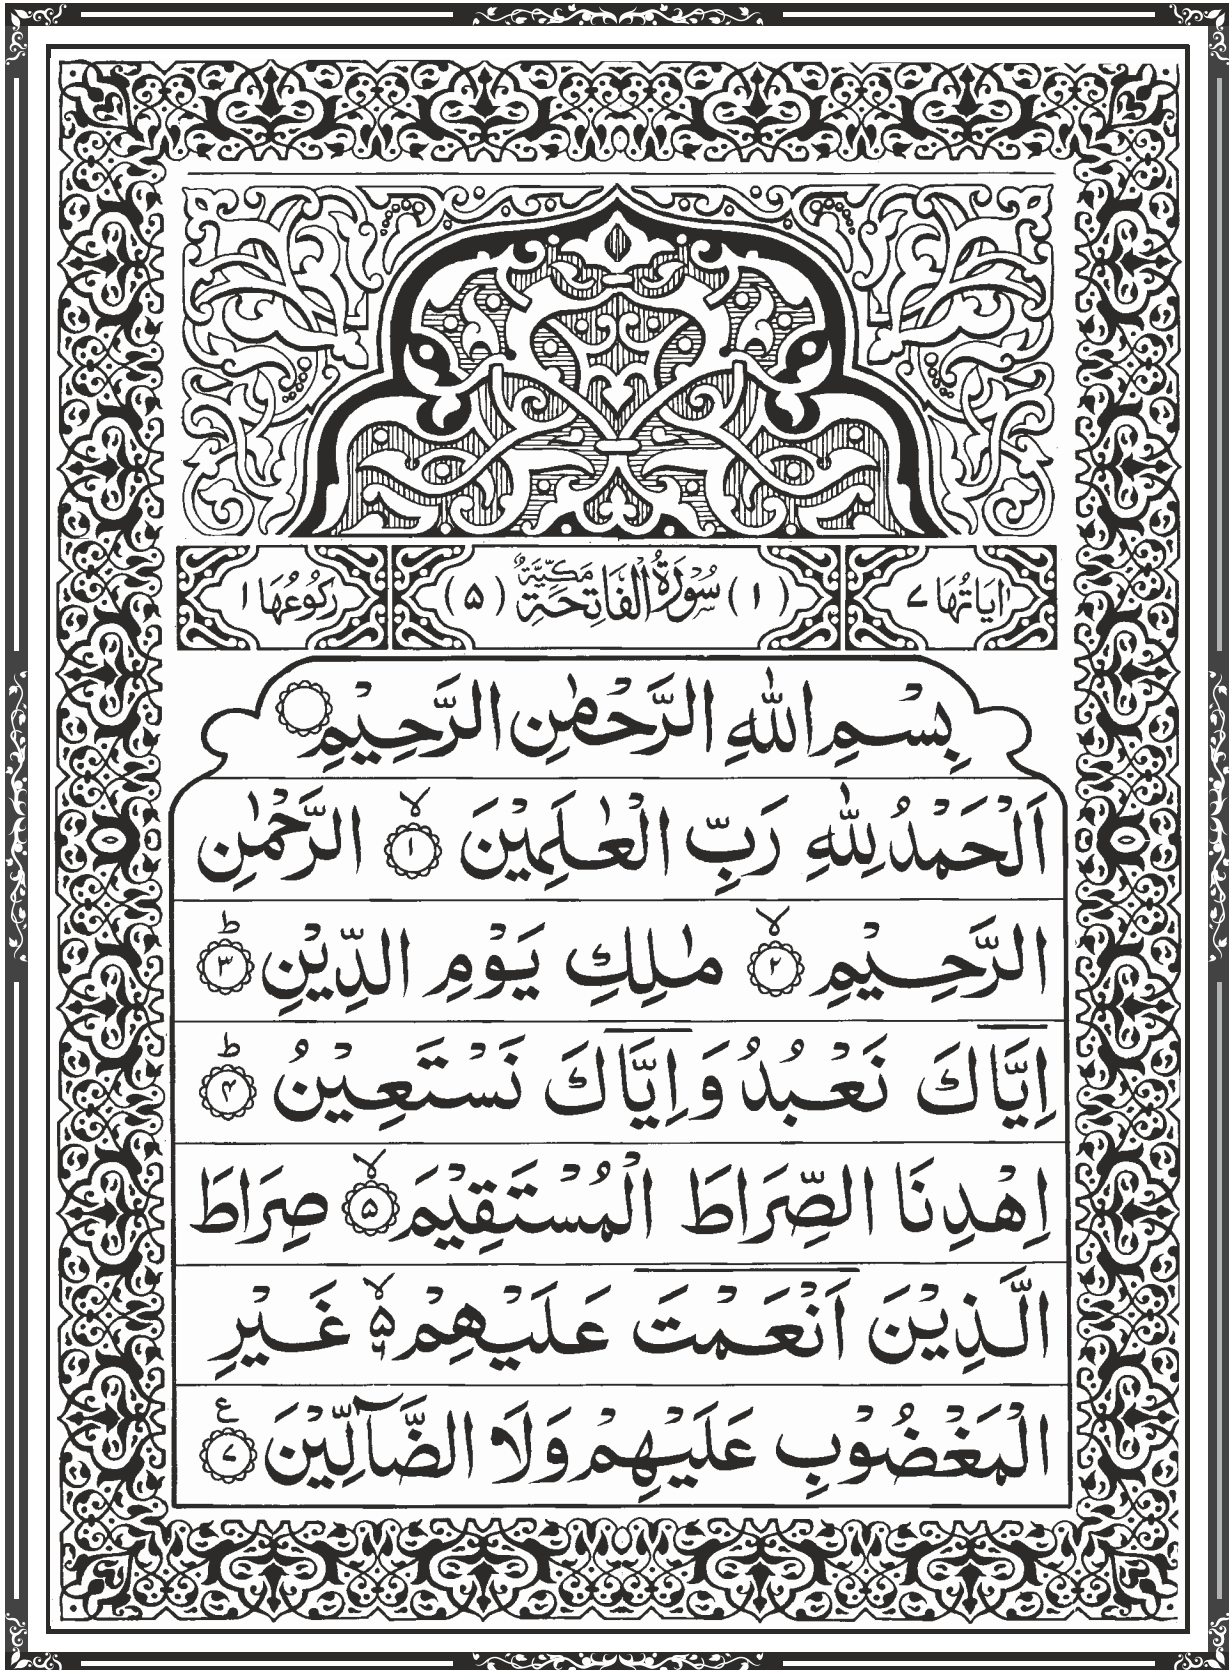 اٰيَاتُهَا ٧ (١) سُوْرَةُ الْفَاتِحَةِ مَكِّيَّةٌ (۵) رُكُوْعُهَا ١
بِسْمِ اللّٰهِ الرَّحْمٰنِ الرَّحِيْمِ
اَلْحَمْدُ لِلّٰهِ رَبِّ الْعٰلَمِيْنَ ۙ﴿١﴾ الرَّحْمٰنِ
الرَّحِيْمِ ۙ﴿٢﴾ مٰلِكِ يَوْمِ الدِّيْنِ ؕ﴿٣﴾
اِيَّاكَ نَعْبُدُ وَاِيَّاكَ نَسْتَعِيْنُ ؕ﴿۴﴾
اِهْدِنَا الصِّرَاطَ الْمُسْتَقِيْمَ ۙ﴿۵﴾ صِرَاطَ
الَّذِيْنَ اَنْعَمْتَ عَلَيْهِمْ ۙ۵ ٦ غَيْرِ
الْمَغْضُوْبِ عَلَيْهِمْ وَلَا الضَّآلِّيْنَ ﴿٧﴾ ع